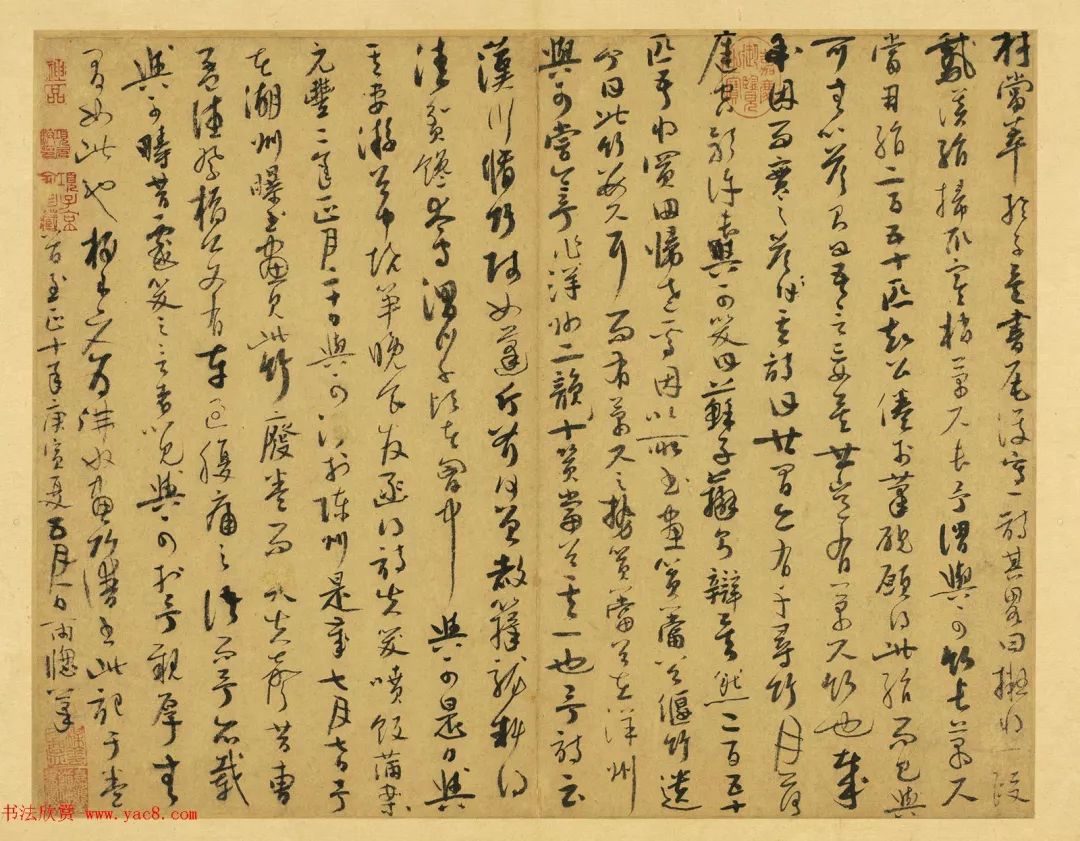 材當萃於子矣書尾復寫一詩其略曰擬將一段
鵝溪絹掃取寒梢萬尺長予謂與可竹長萬尺
當用絹二百五十匹知公倦於筆硯願得此絹而已與
可無以答則曰吾言妄矣世豈有萬尺竹也哉
余因而實之答其詩曰世間亦有千尋竹月落
庭空影許長與可笑曰蘇子辯則辯矣然二百五十
匹吾將買田歸老焉因以所畫篔簹谷偃竹遺
予曰此竹數尺耳而有萬尺之勢篔簹谷在洋州
與可嘗令予作洋州二韻十篔簹谷其一也予詩云
漢川脩竹賤如蓬斤斧何曾赦籜龍料得
清貧饞太守渭川千畝在胸中與可是日與
其妻游谷中燒筍晚食發函得詩失笑噴飯滿案
元豐二年正月二十日與可沒於陳州是歲七月七日予
在湖州曝書畫見此竹廢卷而哭失聲昔曹
孟德祭橋公文有車過腹痛之語而予亦載
與可疇昔戲笑之言者以見與可於予親厚無
間如此也梅道人為佛奴畫竹譜書此記于卷
首至正十年庚寅夏五月一日雨牕筆
項子京
書法欣赏 www.yac8.com